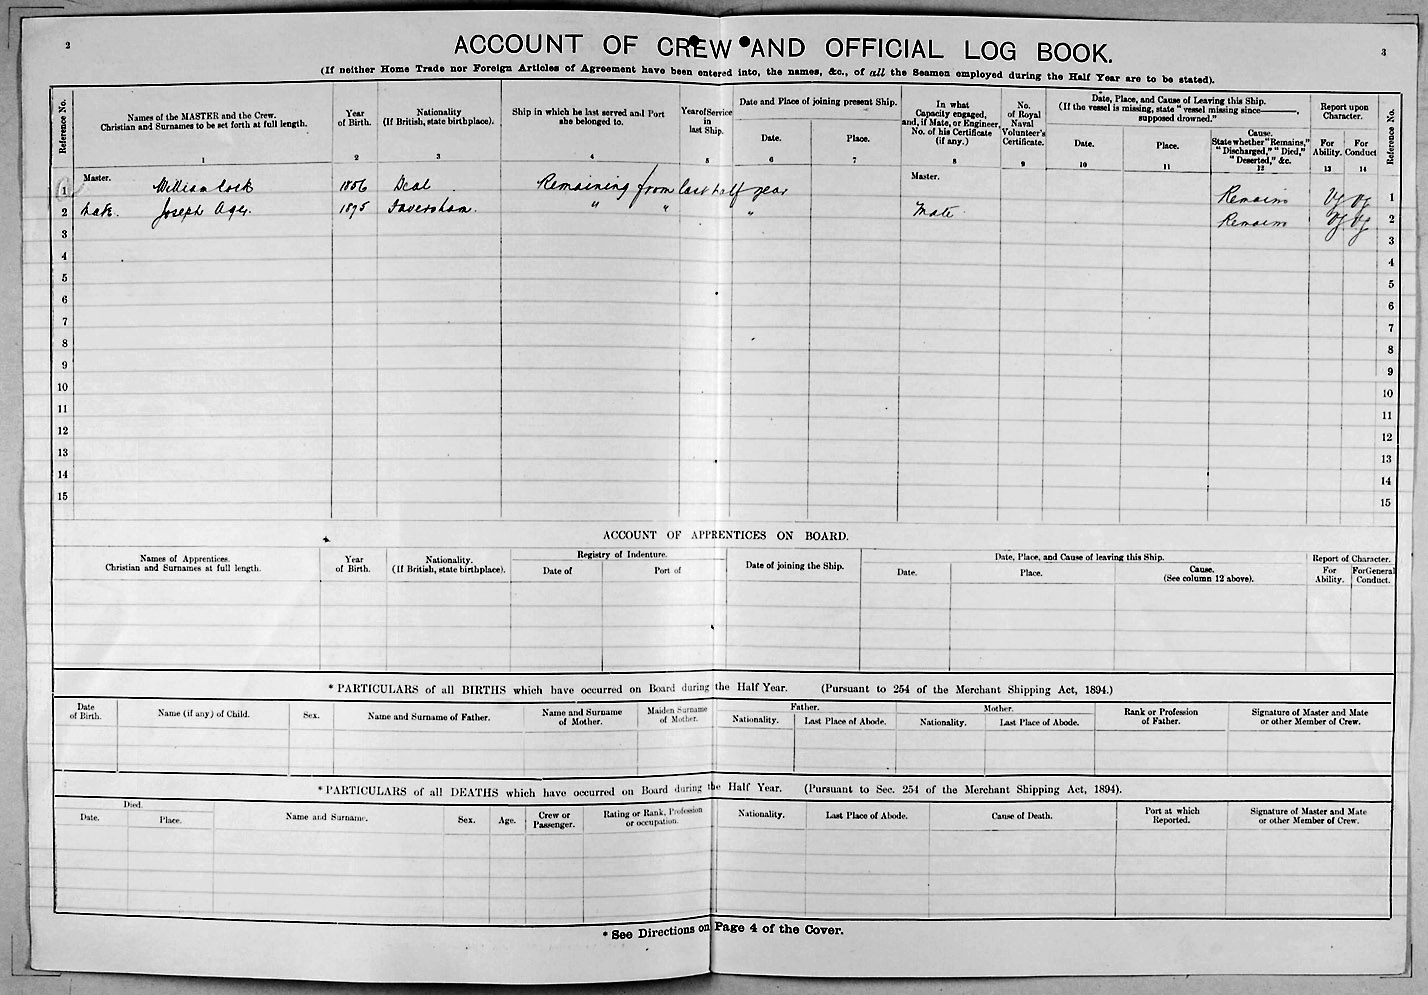 2
3
ACCOUNT OF CREW AND OFFICIAL LOG BOOK.
(If neither Home Trade nor Foreign Articles of Agreement have been entered into, the names, &c., of all the Seamen employed during the Half Year are to be stated).
Reference No.
Names of the MASTER and the Crew.
Christian and Surnames to be set forth at full length.
1
Year
of Birth.
2
Nationality
(If British, state birthplace).
3
Ship in which he last served and Port
she belonged to.
4
Year of Service
in
last Ship.
5
Date and Place of joining present Ship.
Date.
6
Place.
7
In what
Capacity engaged,
and, if Mate, or Engineer,
No. of his Certificate
(if any.)
8
No.
of Royal
Naval
Volunteer's
Certificate.
9
Date, Place, and Cause of Leaving this Ship.
(If the vessel is missing, state "vessel missing since———,
supposed drowned."
Date.
10
Place.
11
Cause.
State whether "Remains,"
"Discharged," "Died,"
"Deserted," &c.
12
Report upon
Character.
For
Ability.
13
For
Conduct
14
Reference No.
1 Master. William Cock 1856 Deal Remaining from last half year Master. Remains Vg Vg 1
2 Mate. Joseph Ager 1895 Faversham. " " " Mate Remains Vg Vg 2
3 3
4 4
5 5
6 6
7 7
8 8
9 9
10 10
11 11
12 12
13 13
14 14
15 15
ACCOUNT OF APPRENTICES ON BOARD.
Names of Apprentices.
Christian and Surnames at full length.
Year
of Birth.
Nationality.
(If British, state birthplace).
Registry of Indenture.
Date of
Port of
Date of joining the Ship.
Date, Place, and Cause of leaving this Ship.
Date.
Place.
Cause.
(See column 12 above).
Report of Character.
For
Ability.
For General
Conduct.
* PARTICULARS of all BIRTHS which have occurred on Board during the Half Year. (Pursuant to 254 of the Merchant Shipping Act, 1894.)
Date
of Birth.
Name (if any) of Child.
Sex.
Name and Surname of Father.
Name and Surname
of Mother.
Maiden Surname
of Mother.
Father.
Nationality.
Last Place of Abode.
Mother.
Nationality.
Last Place of Abode.
Rank or Profession
of Father.
Signature of Master and Mate
or other Member of Crew.
* PARTICULARS of all DEATHS which have occurred on Board during the Half Year. (Pursuant to Sec. 254 of the Merchant Shipping Act, 1894).
Died.
Date.
Place.
Name and Surname.
Sex.
Age.
Crew or
Passenger.
Rating or Rank, Profession
or occupation.
Nationality.
Last Place of Abode.
Cause of Death.
Port at which
Reported.
Signature of Master and Mate
or other Member of Crew.
* See Directions on Page 4 of the Cover.